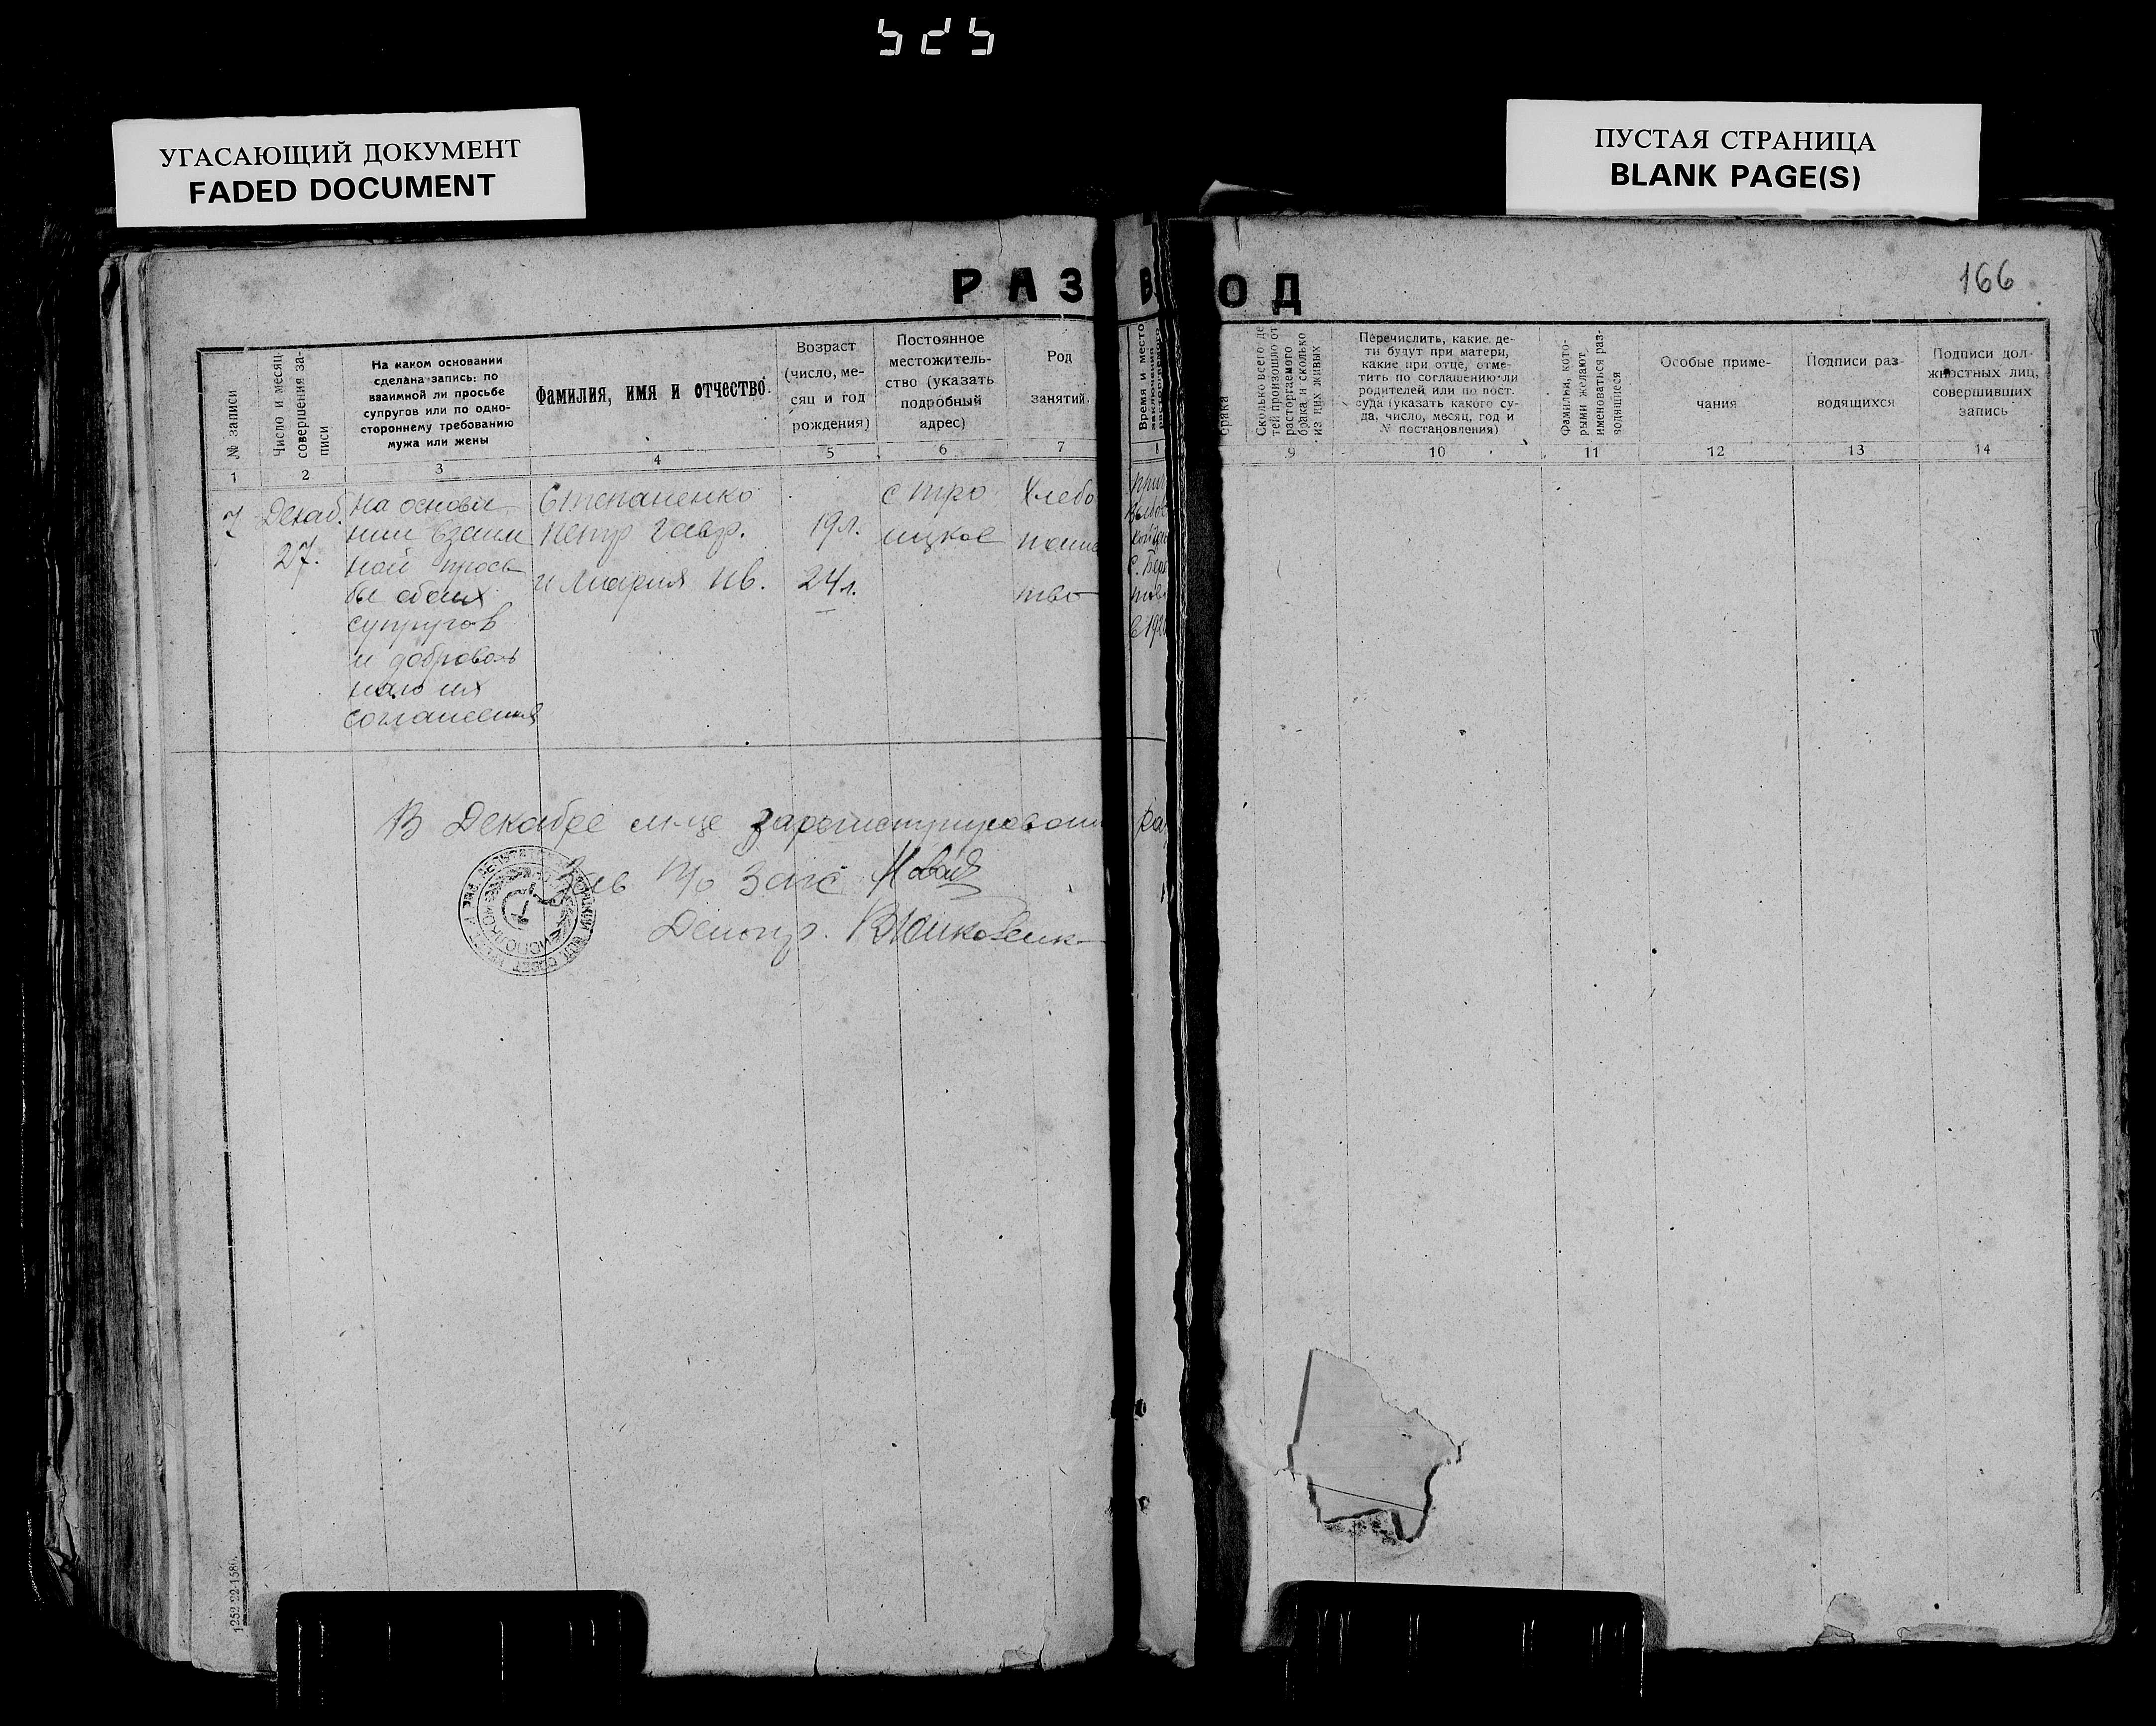 525
УГАСАЮЩИЙ ДОКУМЕНТ
FADED DOCUMENT
ПУСТАЯ СТРАНИЦА
BLANK PAGE(S)
166
РАЗВОД
№ записи
Число и месяц
совершения за-
писи
На каком основании
сделана запись: по
взаимной ли просьбе
супругов или по одно-
стороннему требованию
мужа или жены
Фамилия, имя и отчество.
Возраст
(число, ме-
сяц и год
рождения)
Постоянное
местожитель-
ство (указать
подробный
адрес)
Род
занятий.
Время и место
брака
Сколько всего де
тей произошло от
расторгаемого
брака и сколько
из них живых
Перечислить, какие де-
ти будут при матери,
какие при отце, отме-
тить по соглашению ли
родителей или по пост.
суда (указать какого су-
да, число, месяц, год и
№ постановления)
Фамилии, кото-
рыми желают
именоваться раз-
водящиеся
Особые приме-
чания
Подписи раз-
водящихся
Подписи дол-
жностных лиц,
совершивших
запись
1 2 3 4 5 6 7 8 9 10 11 12 13 14
Декаб.
27.
на основа
нии взаим
ной прось
бы обоих
супругов
и доброволь
наго их
соглашения
Степаненко
Петр Гавр.
и Мария Ив.
19 л.
24 л.
с Тро
ицкое
Хлебо
паше
тво
В Декабре м-це зарегистрировано
Зав П/о Загс
Делопр.
1252-22-1580.